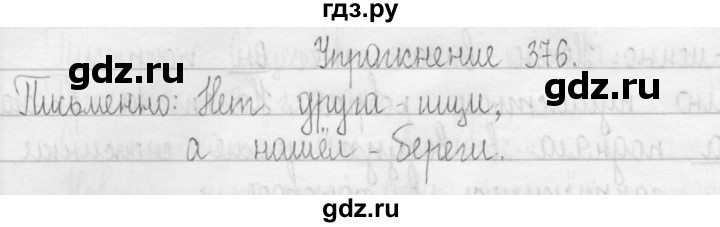 гдз.ру
Упражнение 376.
gdz.ru gdz.ru
Письменно: Нет друга - ищи,
а нашёл - береги.
gdz.ru gdz.ru
гдз.ру